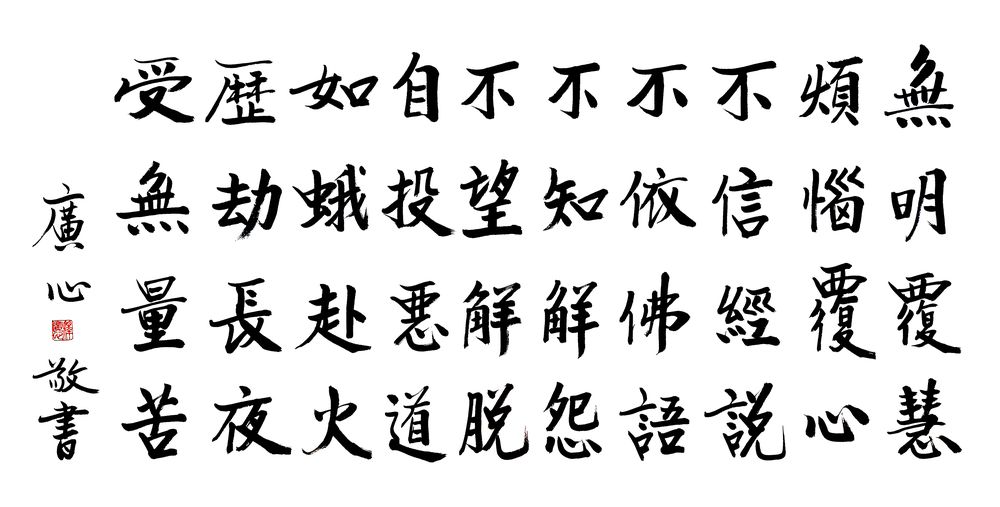 無明覆慧
煩惱覆心
不信經說
不依佛語
不知解怨
不望解脫
自投惡道
如蛾赴火
歷劫長夜
受無量苦
廣心敬書